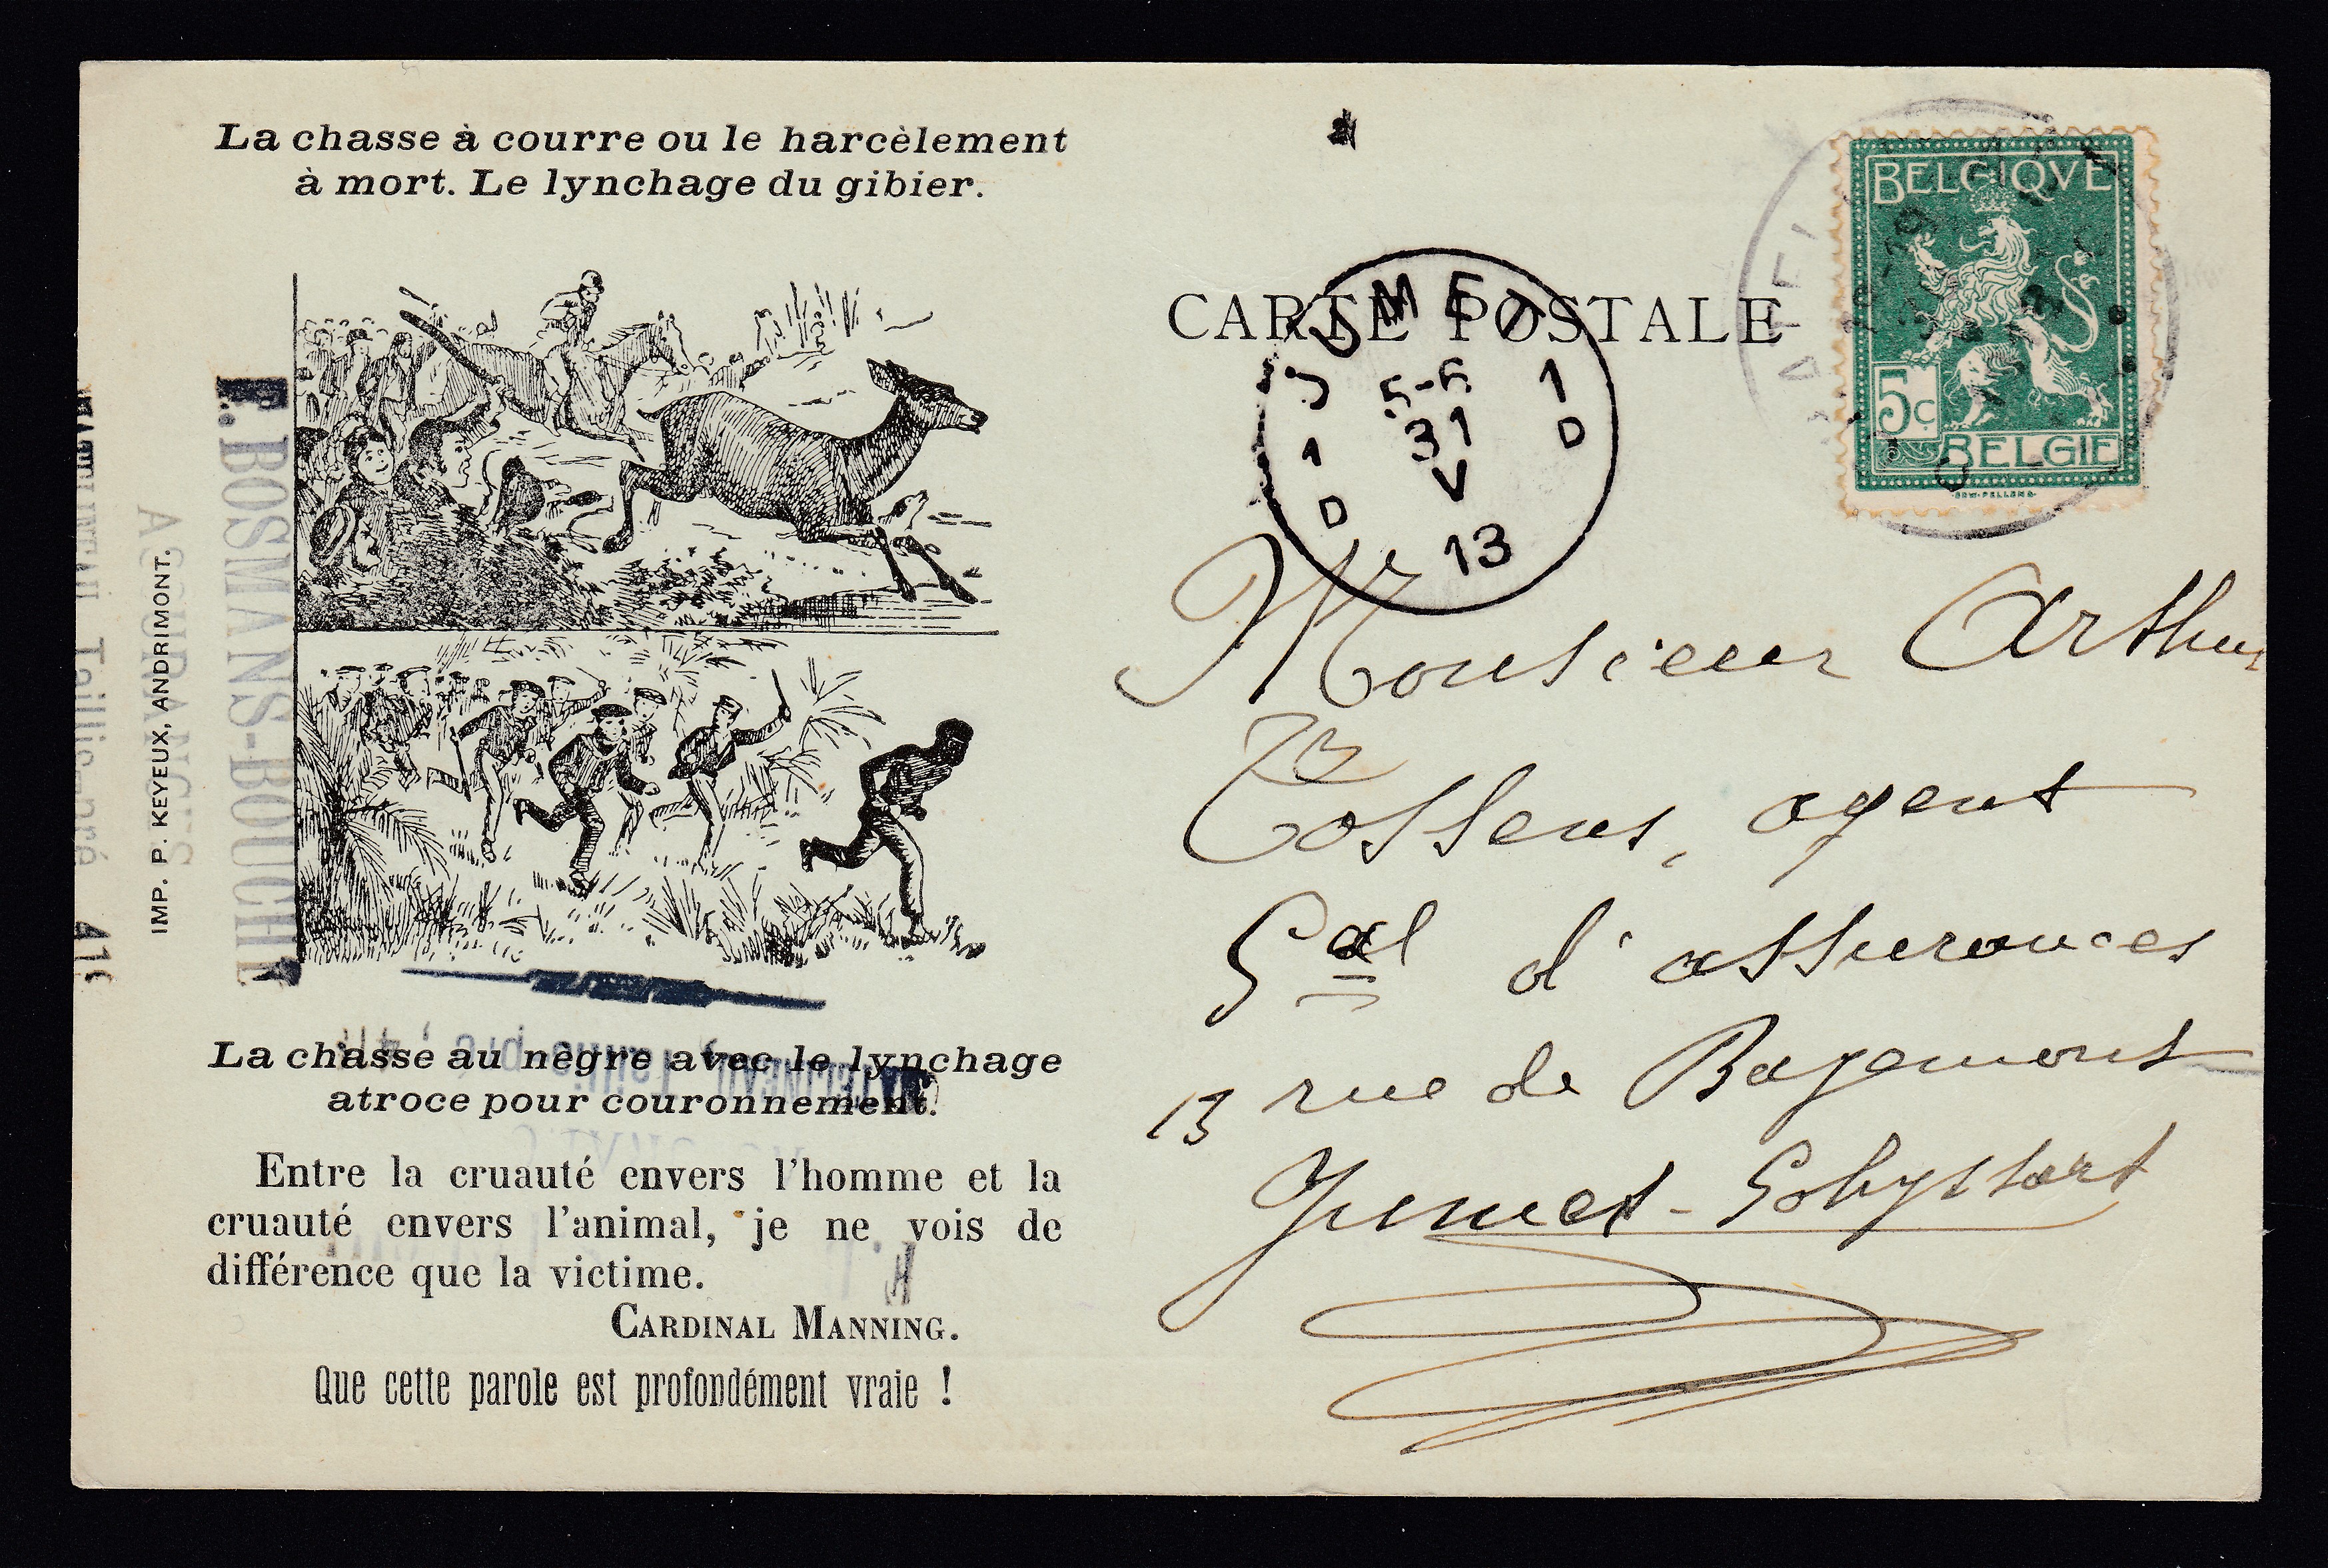 La chasse à courre ou le harcèlement
à mort. Le lynchage du gibier.
F. BOSMANS-BOUCHE
ASSURANCES
IMP. P. KEYEUX, ANDRIMONT.
La chasse au nègre avec le lynchage
atroce pour couronnement.
Entre la cruauté envers l'homme et la
cruauté envers l'animal, je ne vois de
différence que la victime.
CARDINAL MANNING.
Que cette parole est profondément vraie !
CARTE POSTALE
JUMET 1
5-6
31
V
13
1 D
D
BELGIQVE
5c
BELGIË
Monsieur Arthur
Cossens, agent
Gal d'assurances
13 rue de Bayemont
Jumet-Gohyssart